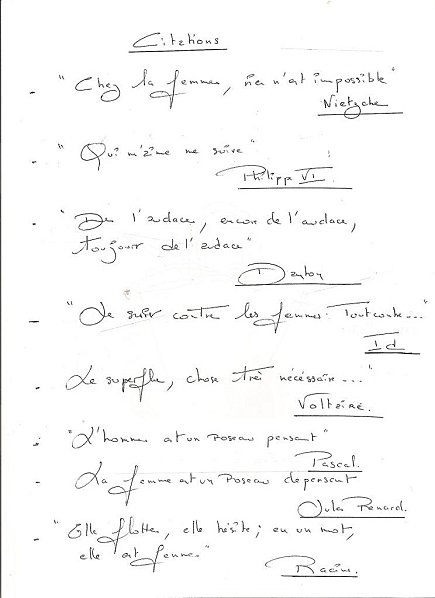 Citations
- "Chez la femme, rien n'est impossible"
Nietzche
- "Qui m'aime me suive"
Philippe VI.
- "De l'audace, encore de l'audace,
toujours de l'audace"
Danton
- "Je suis contre les femmes. Tout contre..."
Id
- Le superflu, chose très nécessaire..."
Voltaire.
- "L'homme est un roseau pensant"
Pascal.
- La femme est un roseau dépensant
Jules Renard.
- "Elle flotte, elle hésite; en un mot,
elle est femme."
Racine.